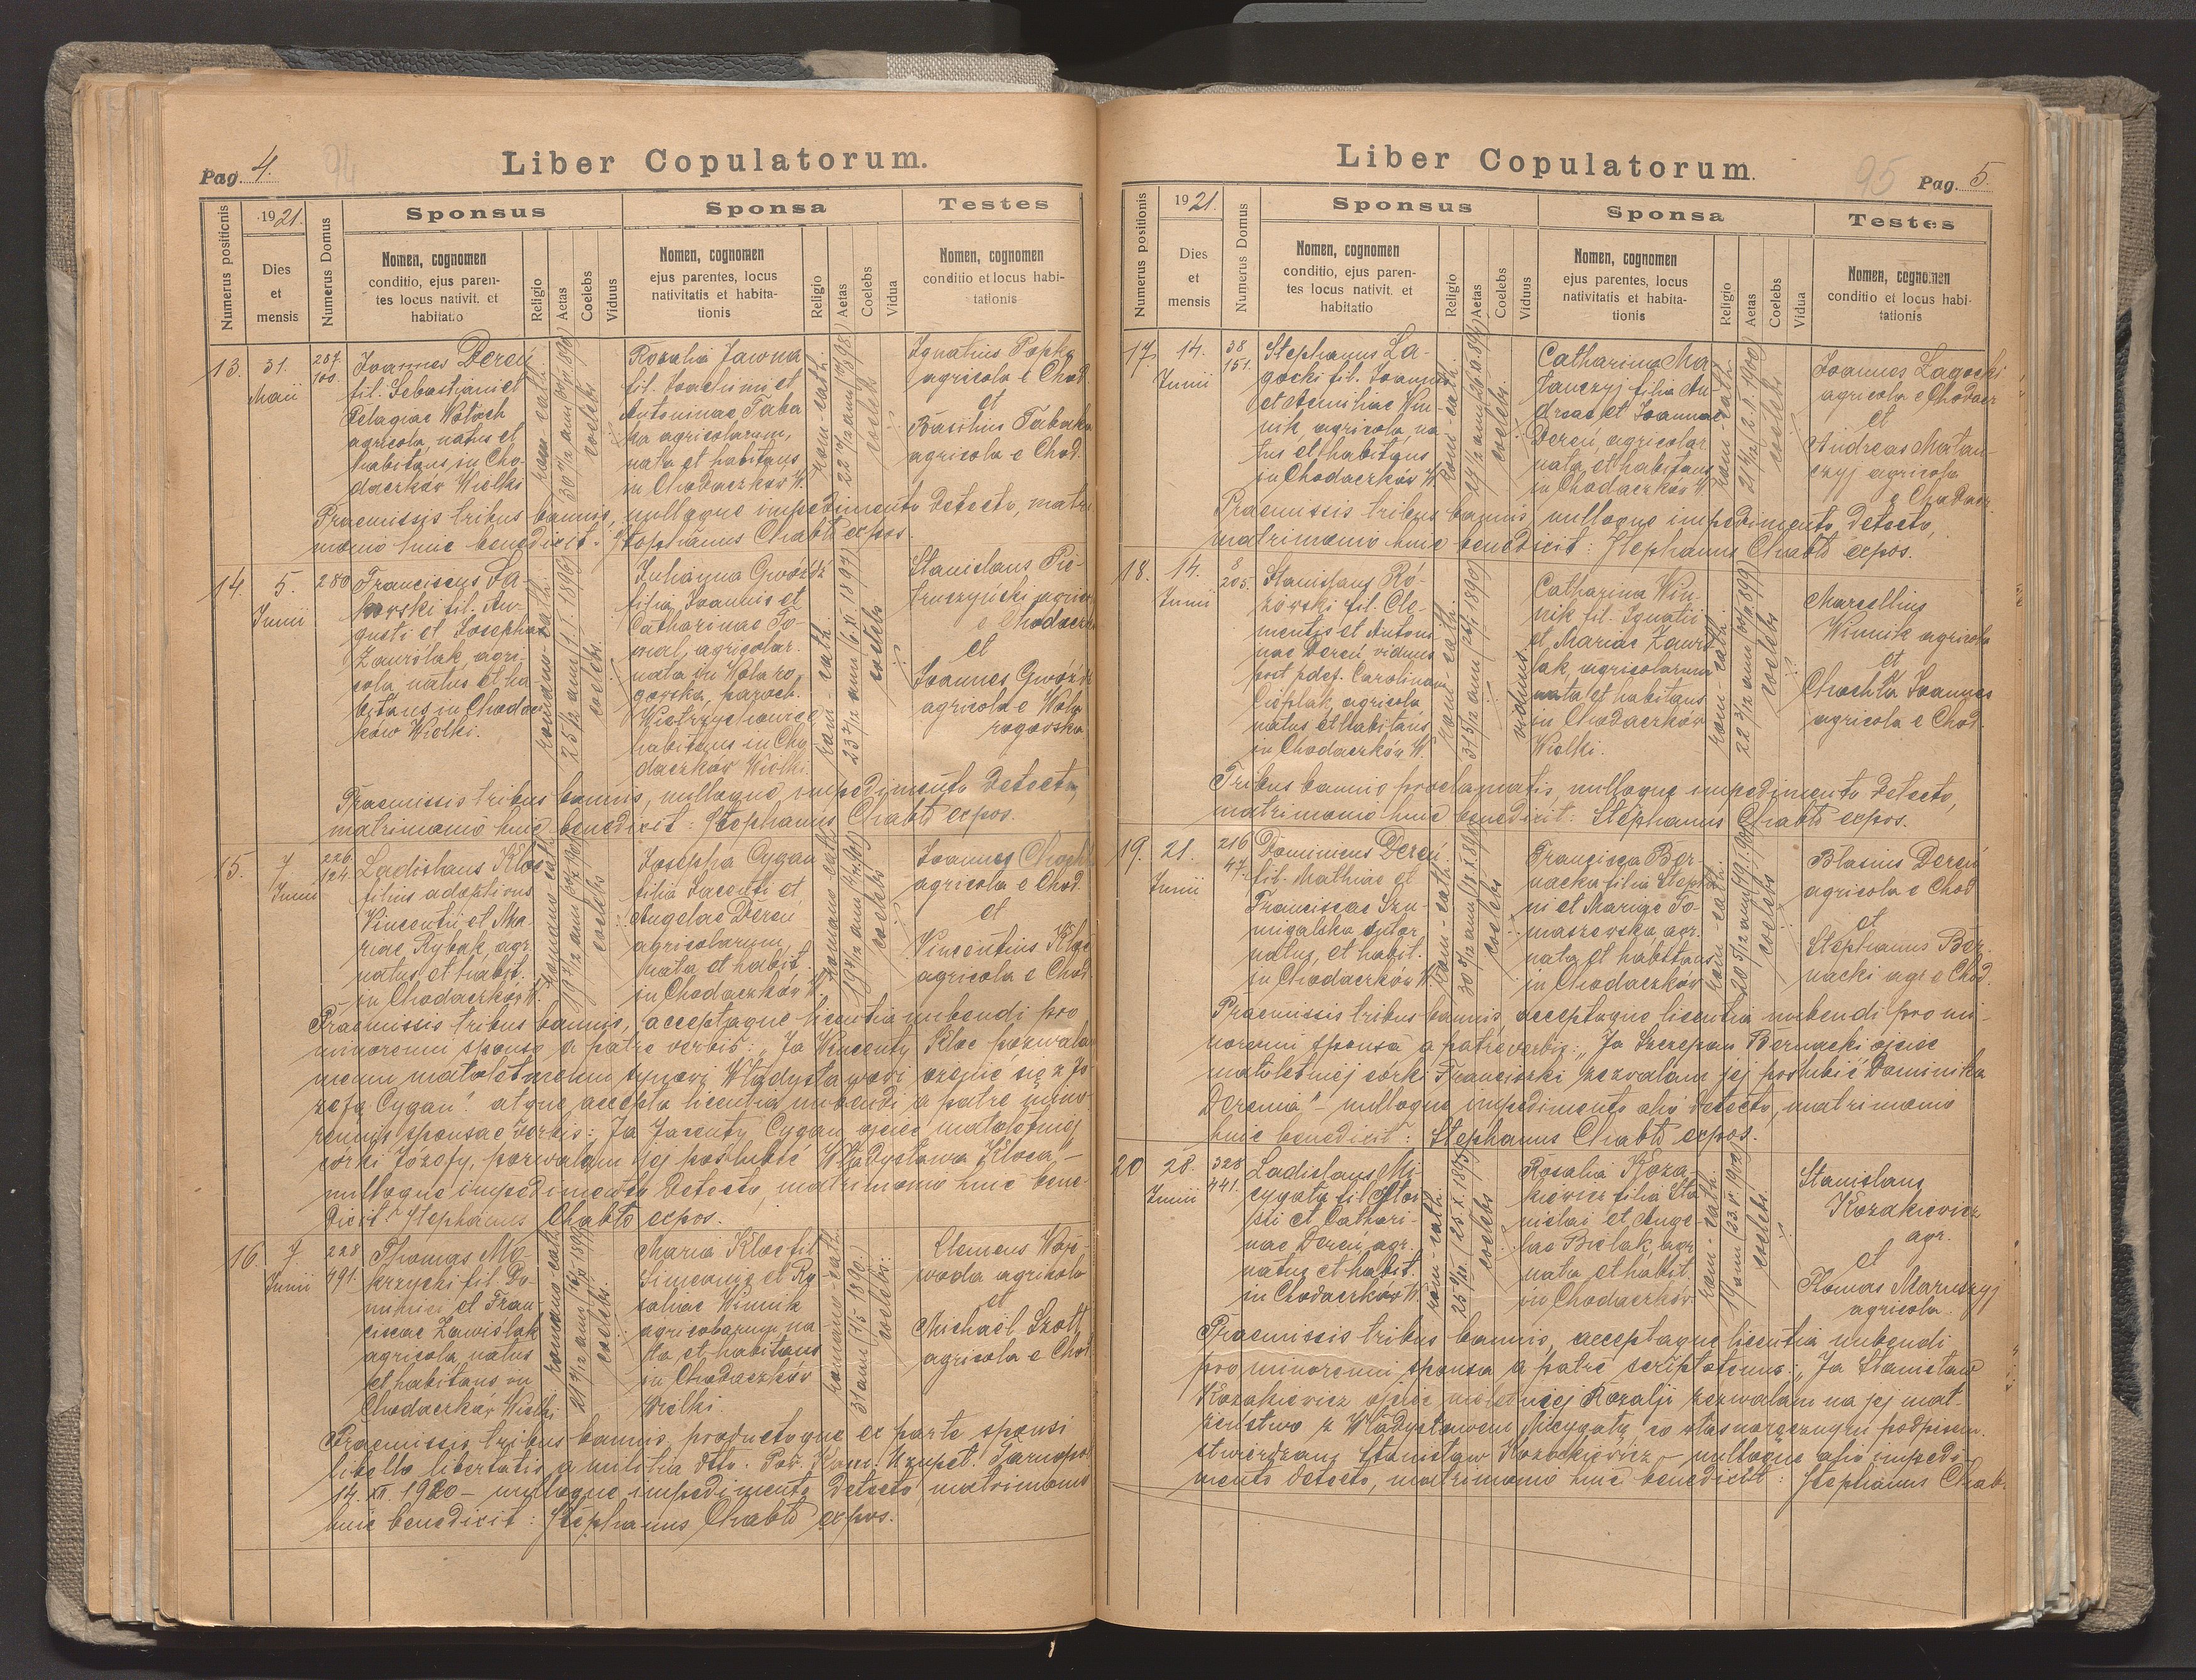 Pag. 4.
94
Liber Copulatorum.
Numerus positionis
1921.
Dies
et
mensis
Numerus Domus
Sponsus
Nomen, cognomen
conditio, ejus paren-
tes locus nativit. et
habitatio
Religio
Aetas
Coelebs
Viduus
Sponsa
Nomen, cognomen
ejus parentes, locus
nativitatis et habita-
tionis
Religio
Aetas
Coelebs
Vidua
Testes
Nomen, cognomen
conditio et locus habi-
tationis
13.
31.
Maii
287.
100.
Joannes Dereń
fil. Sebastiani et
Pelagiae Wołoch
agricola, natus et
habitans in Cho-
daczków Wielki
rom-cath.
coelebs
Rozalia Jawna
fil. Joachimi et
Antoninae Taba
ka agricolarum,
nata et habitans
in Chodaczków W.
rom-cath.
coelebs
Ignatius
agricola e Chod.
et
Basilius Tabaka
agricola e Chod.
Praemissis tribus bannis, nulloque impedimento detecto, matri
monio huic benedixit: Stephanus Chabło expos.
14.
5.
Junii
280
Franciscus Ła-
howski fil. Au-
gusti et Josephae
Zawiślak, agri
cola natus et ha
bitans in Chodacz
ków Wielki.
romano-cath.
coelebs.
Julianna Gwóźdź
filia Joannis et
Catharinae To-
mal, agricolar.
nata in Wola ro
gowska, paroch.
Wietrzychowice
habitans in Cho
daczków Wielki.
rom-cath.
coelebs
Stanislaus Pie-
truszyński agric
e Chodaczk
et
Joannes Gwóźdź
agricola e Wola
rogowska
Praemissis tribus bannis, nulloque impedimento detecto,
matrimonio huic benedixit: Stephanus Chabło expos.
15.
7
Junii
226.
124.
Ladislaus Kloc
filius adoptivus
Vincentii et Ma
riae Rybak, agr.
natus et habit.
in Chodaczków W.
romano cath.
coelebs
Josepha Cygan
filia Jacenti et
Angelae Dereń
agricolarum,
nata et habit.
in Chodaczków W.
romano cath.
coelebs
Joannes
agricola e Chod.
et
Vincentius Kloc
agricola e Chod.
Praemissis tribus bannis, acceptaque licentia nubendi pro
minorenni sponso a patre verbis: „Ja Wincenty Kloc pozwalam
memu małoletniemu synowi Władysławowi ożenić się z Jó-
zefą Cygan". atque accepta licentia nubendi a patre mino-
rennis sponsae verbis: Ja Jacenty Cygan ojciec małoletniej
córki Józefy, pozwalam jej poślubić Władysława Kloca" –
nulloque impedimento detecto, matrimonio huic bene-
dixit. Stephanus Chabło expos.
16.
7
Junii
228
491.
Thomas Mo-
krzycki fil. Do-
minici et Fran
ciscae Zawiślak
agricola natus
et habitans in
Chodaczków Wielki
romano cath.
coelebs.
Maria Kloc fil
Simeonis et Ro
saliae Winnik
agricolarum na
ta et habitans
in Chodaczków
Wielki.
romano-cath.
coelebs.
Clemens Woje
woda agricola
et
Michaël Szott
agricola e Chod
Praemissis tribus bannis, productoque ex parte sponsi
libello libertatis a militia dtto. Pow. Kom. Uzupeł. Tarnopol
14. XII. 1920 – nulloque impedimento detecto, matrimonio
huic benedixit: Stephanus Chabło expos.
Liber Copulatorum.
95
Pag. 5.
Numerus positionis
1921.
Dies
et
mensis
Numerus Domus
Sponsus
Nomen, cognomen
conditio, ejus paren-
tes locus nativit. et
habitatio
Religio
Aetas
Coelebs
Viduus
Sponsa
Nomen, cognomen
ejus parentes, locus
nativitatis et habita-
tionis
Religio
Aetas
Coelebs
Vidua
Testes
Nomen, cognomen
conditio et locus habi-
tationis
17.
14.
Junii
38
151.
Stephanus Ła-
gocki fil. Joannis
et Aemiliae Win-
nik, agricola, na-
tus et habitans
in Chodaczków W.
rom-cath.
coelebs.
Catharina Ma
łanczyj filia An
dreae et Joannae
Dereń, agricolar.
nata et habitans
in Chodaczków W.
rom-cath.
coelebs
Joannes Łagocki
agricola e Chodacz
et
Andreas Małan-
czyj agricola
e Chodacz.
Praemissis tribus bannis, nulloque impedimento detecto,
matrimonio huic benedixit: Stephanus Chabło expos.
18.
14.
Junii
8
205.
Stanislaus Ró-
żowski fil. Cle-
mentis et Antoni
nae Dereń, viduus
post pdef. Carolinam
Cieplak, agricola
natus et habitans
in Chodaczków W.
rom-cath.
viduus.
Catharina Win-
nik fil. Ignatii
et Mariae Zawiś
lak, agricolarum
nata et habitans
in Chodaczków
Wielki.
rom-cath.
coelebs
Marcellius
Winnik agricola
et
Chochla Joannes
agricola e Chod.
Tribus bannis proclamatis, nulloque impedimento detecto,
matrimonio huic benedixit: Stephanus Chabło expos.
19.
21.
Junii
216
47.
Dominicus Dereń
fil. Mathiae et
Franciscae Szu-
migalska sutor
natus, et habit.
in Chodaczków W.
rom-cath.
coelebs
Francisca Ber-
nacka filia Stepha
ni et Mariae To-
maszewska agr.
nata et habitans
in Chodaczków
rom-cath.
coelebs
Blasius Dereń
agricola e Chod
et
Stephanus Ber-
nacki agr e Chod.
Praemissis tribus bannis, acceptaque licentia nubendi pro mi-
norenni sponsa a patre verbis: „Ja Szczepan Bernacki ojciec
małoletniej córki Franciszki zezwalam jej poślubić Dominika
Derenia" – nulloque impedimento alio detecto, matrimonio
huic benedixit: Stephanus Chabło expos.
20
28.
Junii
328
441.
Ladislaus Mi-
cygała fil
et Cathari-
nae Dereń, agr.
natus et habit.
in Chodaczków W.
rom-cath.
coelebs
Rosalia Koza-
kiewicz filia Sta
nislai et Ange
lae Bielak, agr
nata et habit.
in Chodaczków
rom-cath.
coelebs.
Stanislaus
Kozakiewicz
agr.
et
Thomas Maruszyj
agricola.
Praemissis tribus bannis, acceptaque licentia nubendi
pro minorenni sponsa a patre scriptotenus: „Ja Stanisław
Kozakiewicz ojciec małoletniej Rozalji zezwalam na jej mał-
żeństwo z Władysławem Micygałą, co własnoręcznym podpisem
stwierdzam Stanisław Kozakiewicz – nulloque alio impedi-
mento detecto, matrimonio huic benedixit: Stephanus Chab